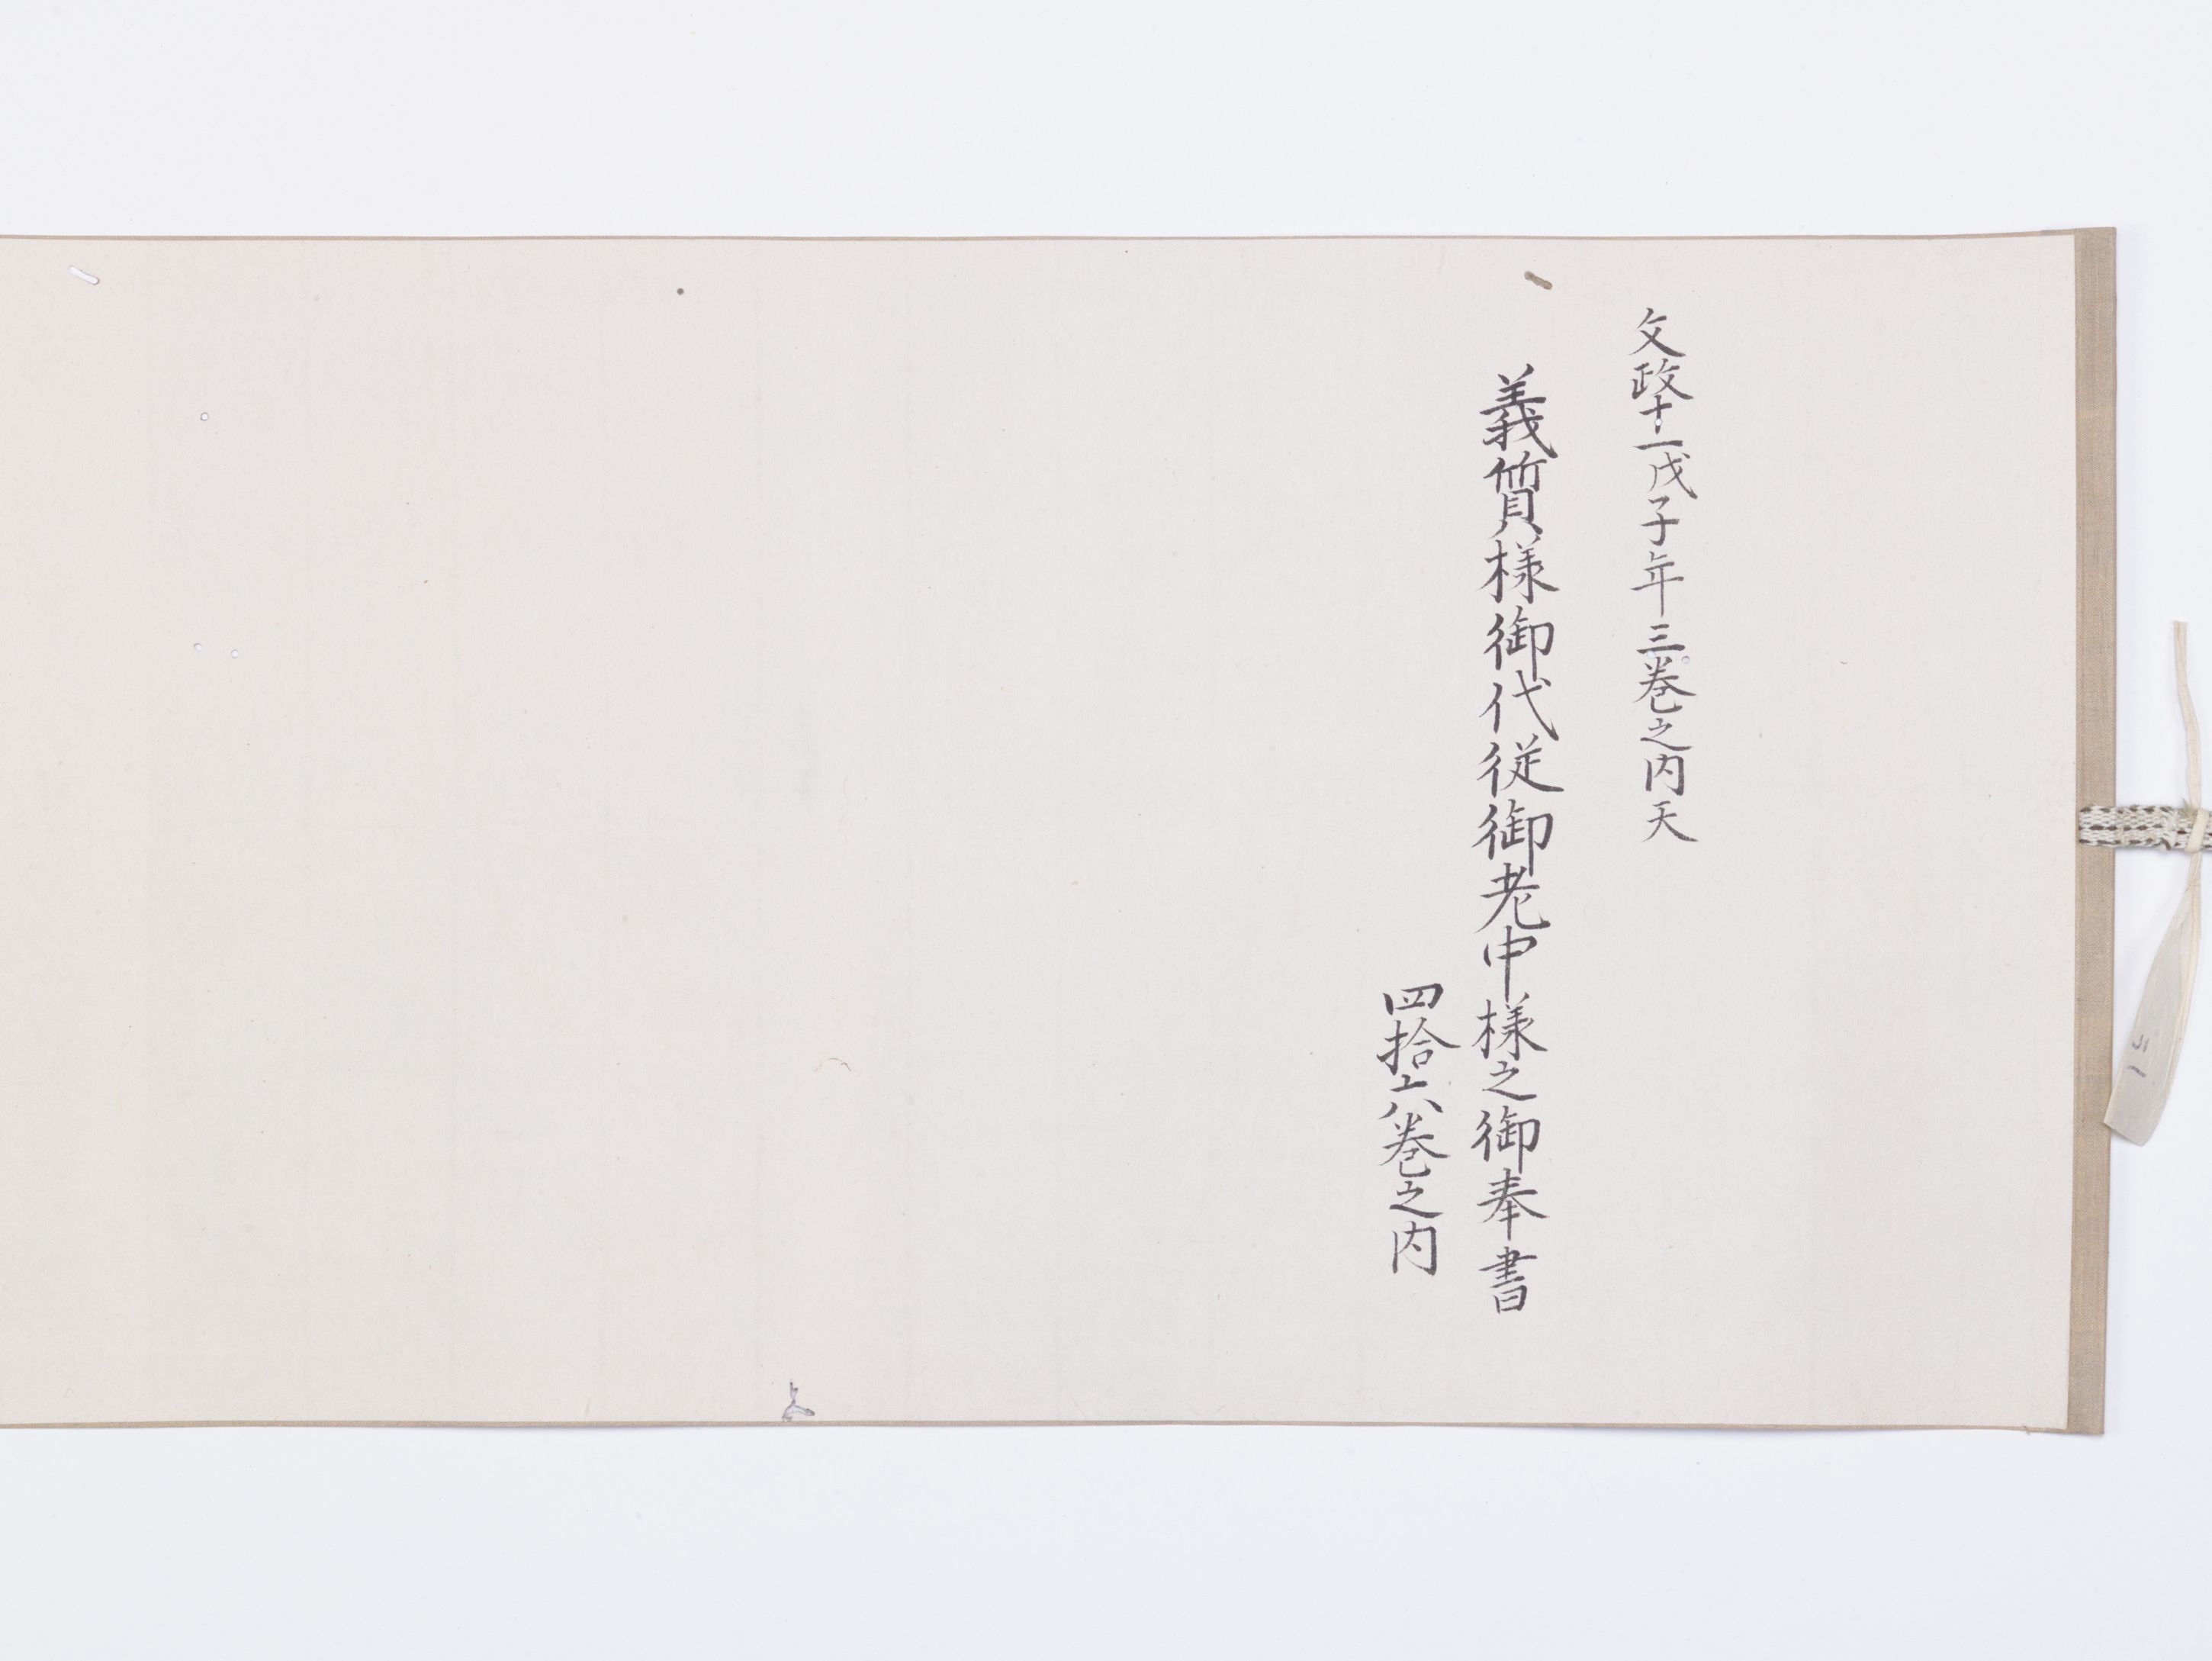 文政十一戊子年三巻之内天
義質様御代従御老中様之御奉書
四拾六巻之内
51